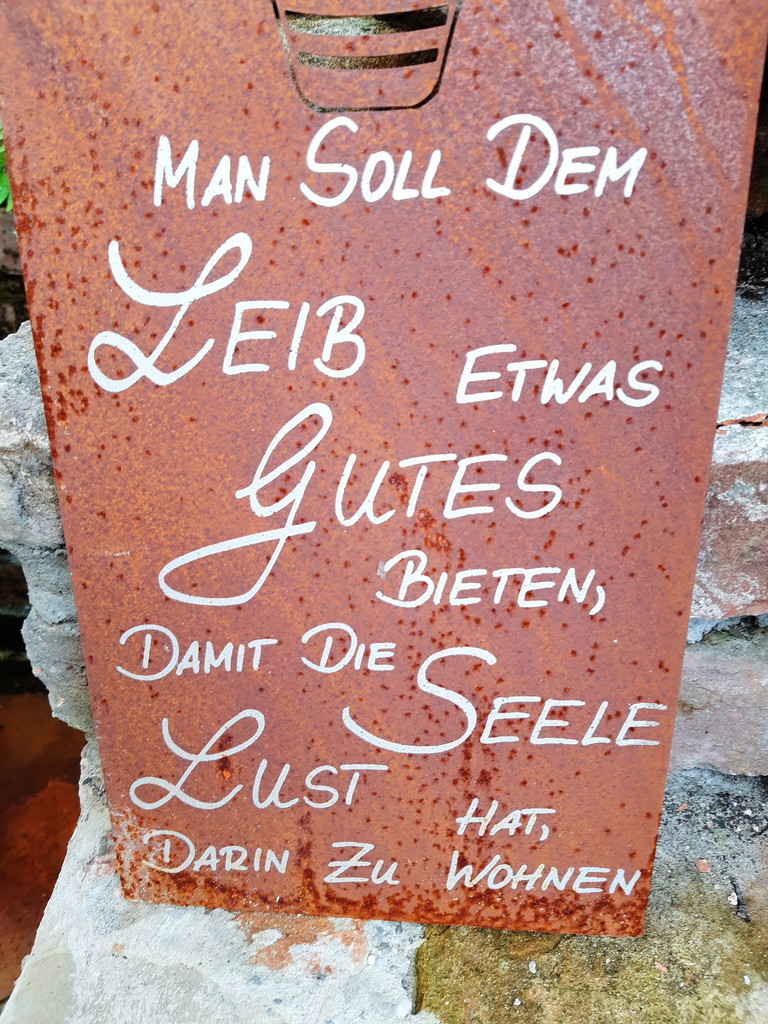 Man Soll Dem
Leib Etwas
Gutes
Bieten,
Damit Die Seele
Lust Hat,
Darin Zu Wohnen